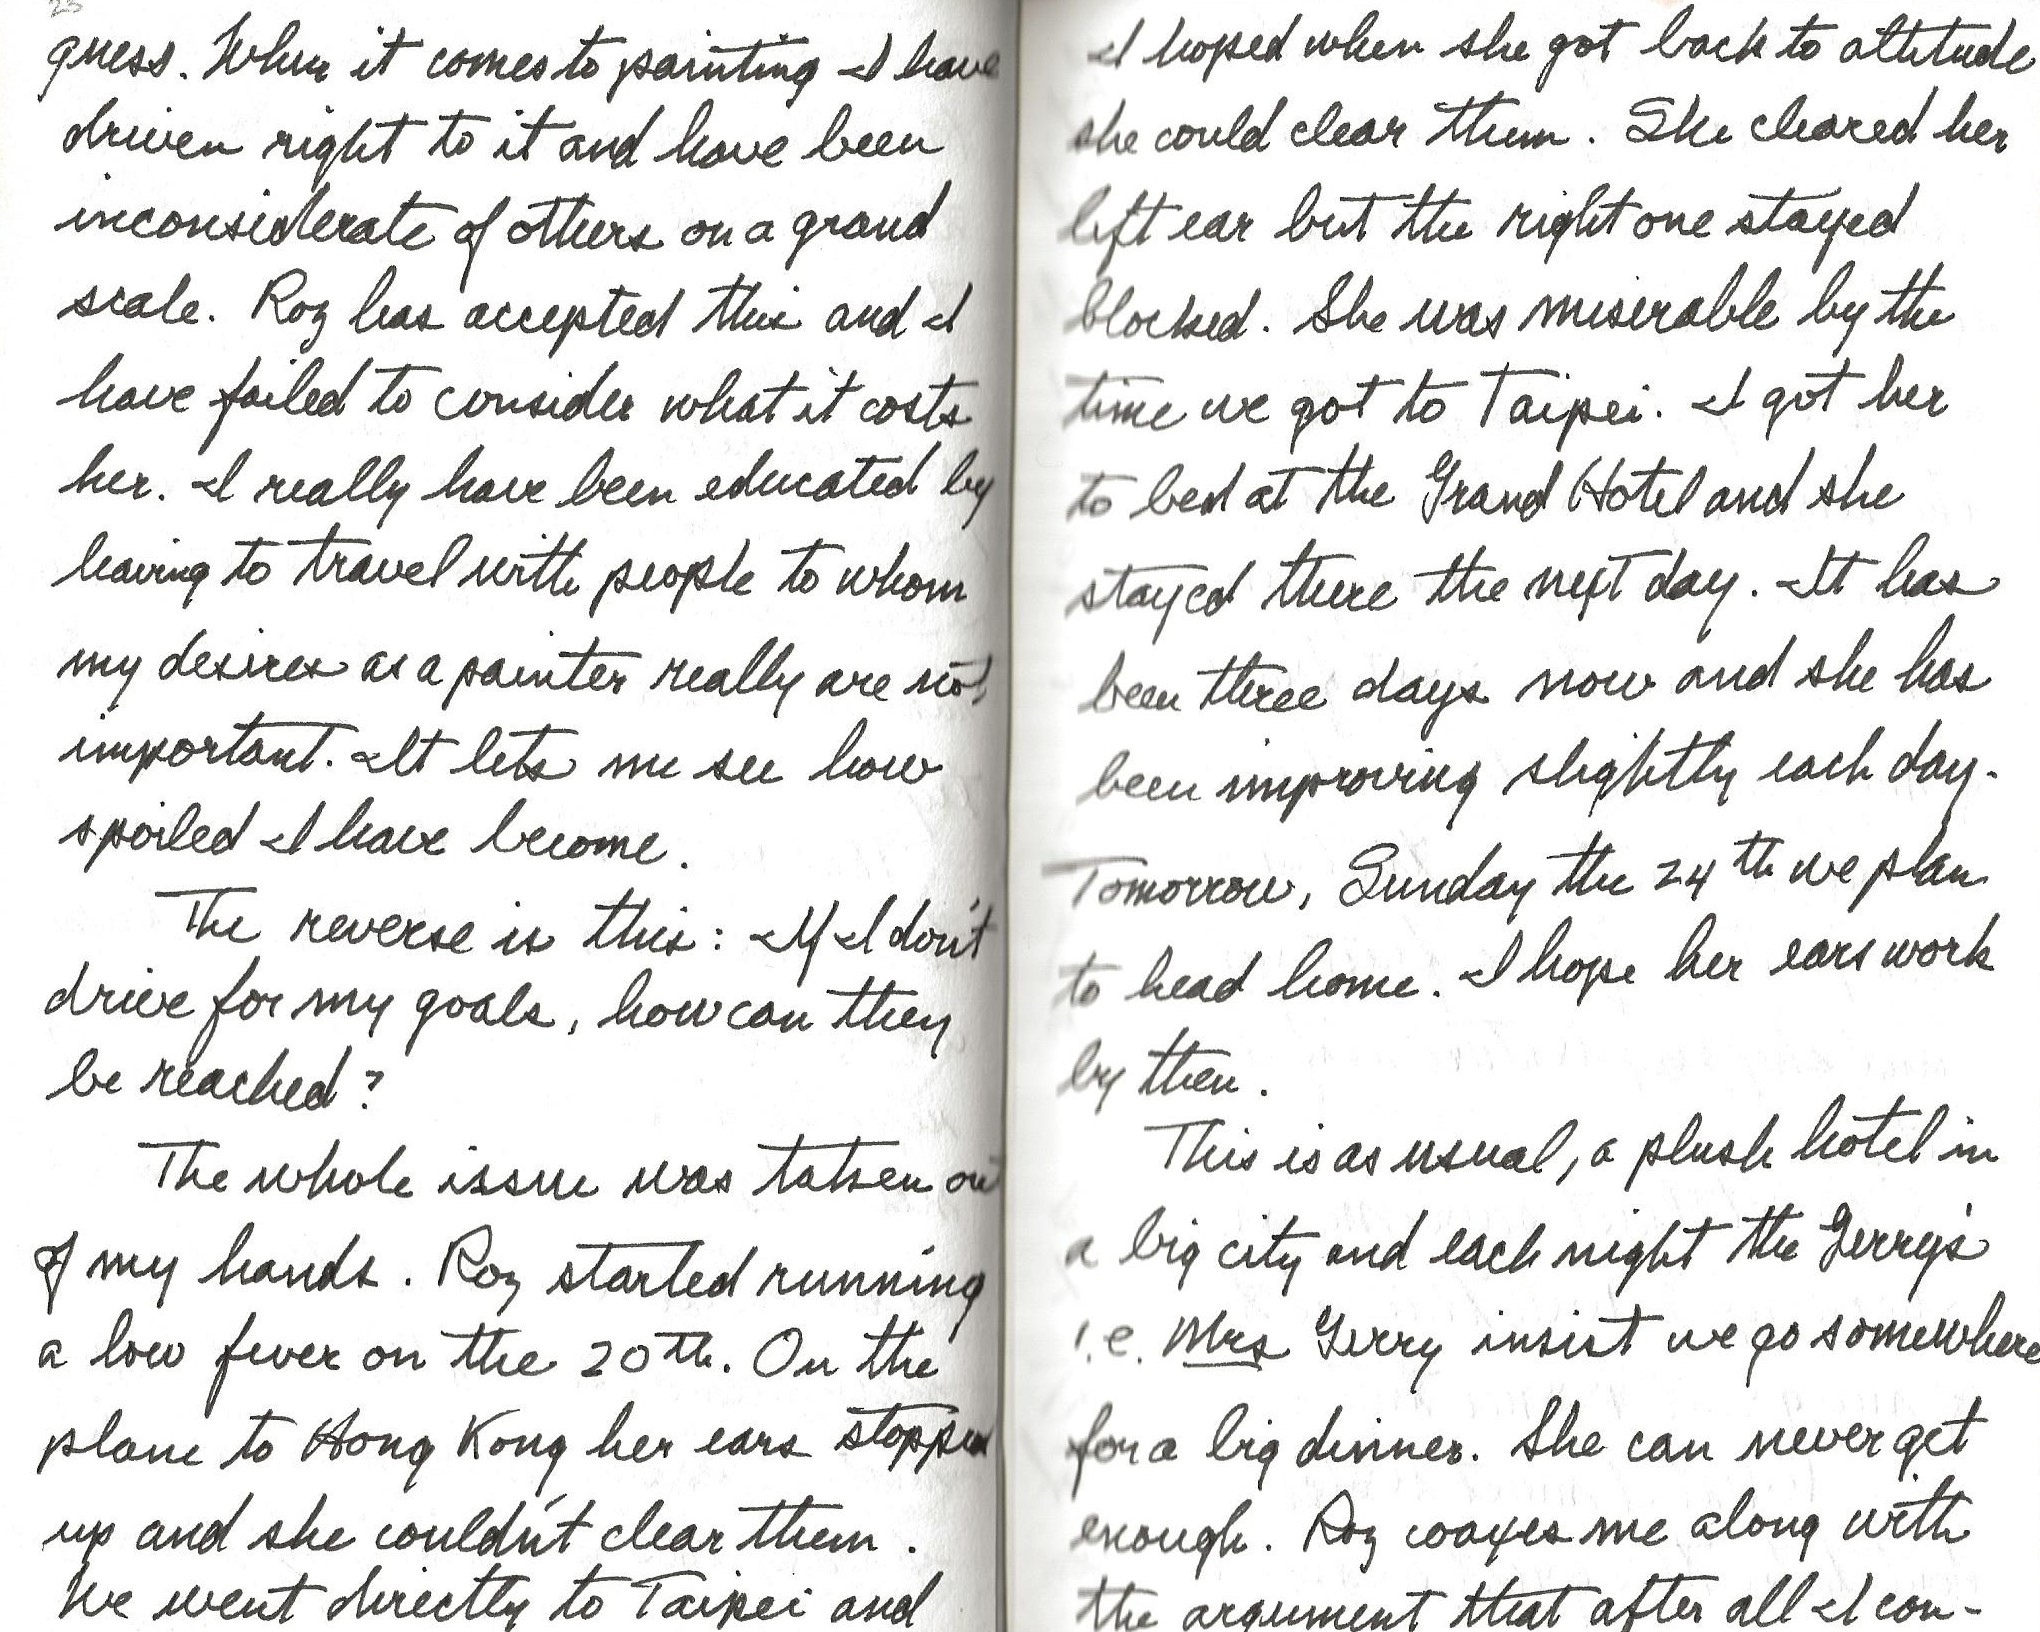 23
guess. When it comes to painting I have
driven right to it and have been
inconsiderate of others on a grand
scale. Roz has accepted this and I
have failed to consider what it costs
her. I really have been educated by
having to travel with people to whom
my desires as a painter really are not
important. It lets me see how
spoiled I have become.
The reverse is this: If I don't
drive for my goals, how can they
be reached?
The whole issue was taken out
of my hands. Roz started running
a low fever on the 20th. On the
plane to Hong Kong her ears stopped
up and she couldn't clear them.
We went directly to Taipei and
I hoped when she got back to altitude
she could clear them. She cleared her
left ear but the right one stayed
blocked. She was miserable by the
time we got to Taipei. I got her
to bed at the Grand Hotel and she
stayed there the next day. It has
been three days now and she has
been improving slightly each day.
Tomorrow, Sunday the 24th we plan
to head home. I hope her ears work
by then.
This is as usual, a plush hotel in
a big city and each night the Gerry's
i.e. Mrs Gerry insist we go somewhere
for a big dinner. She can never get
enough. Roz coaxes me along with
the argument that after all I con-